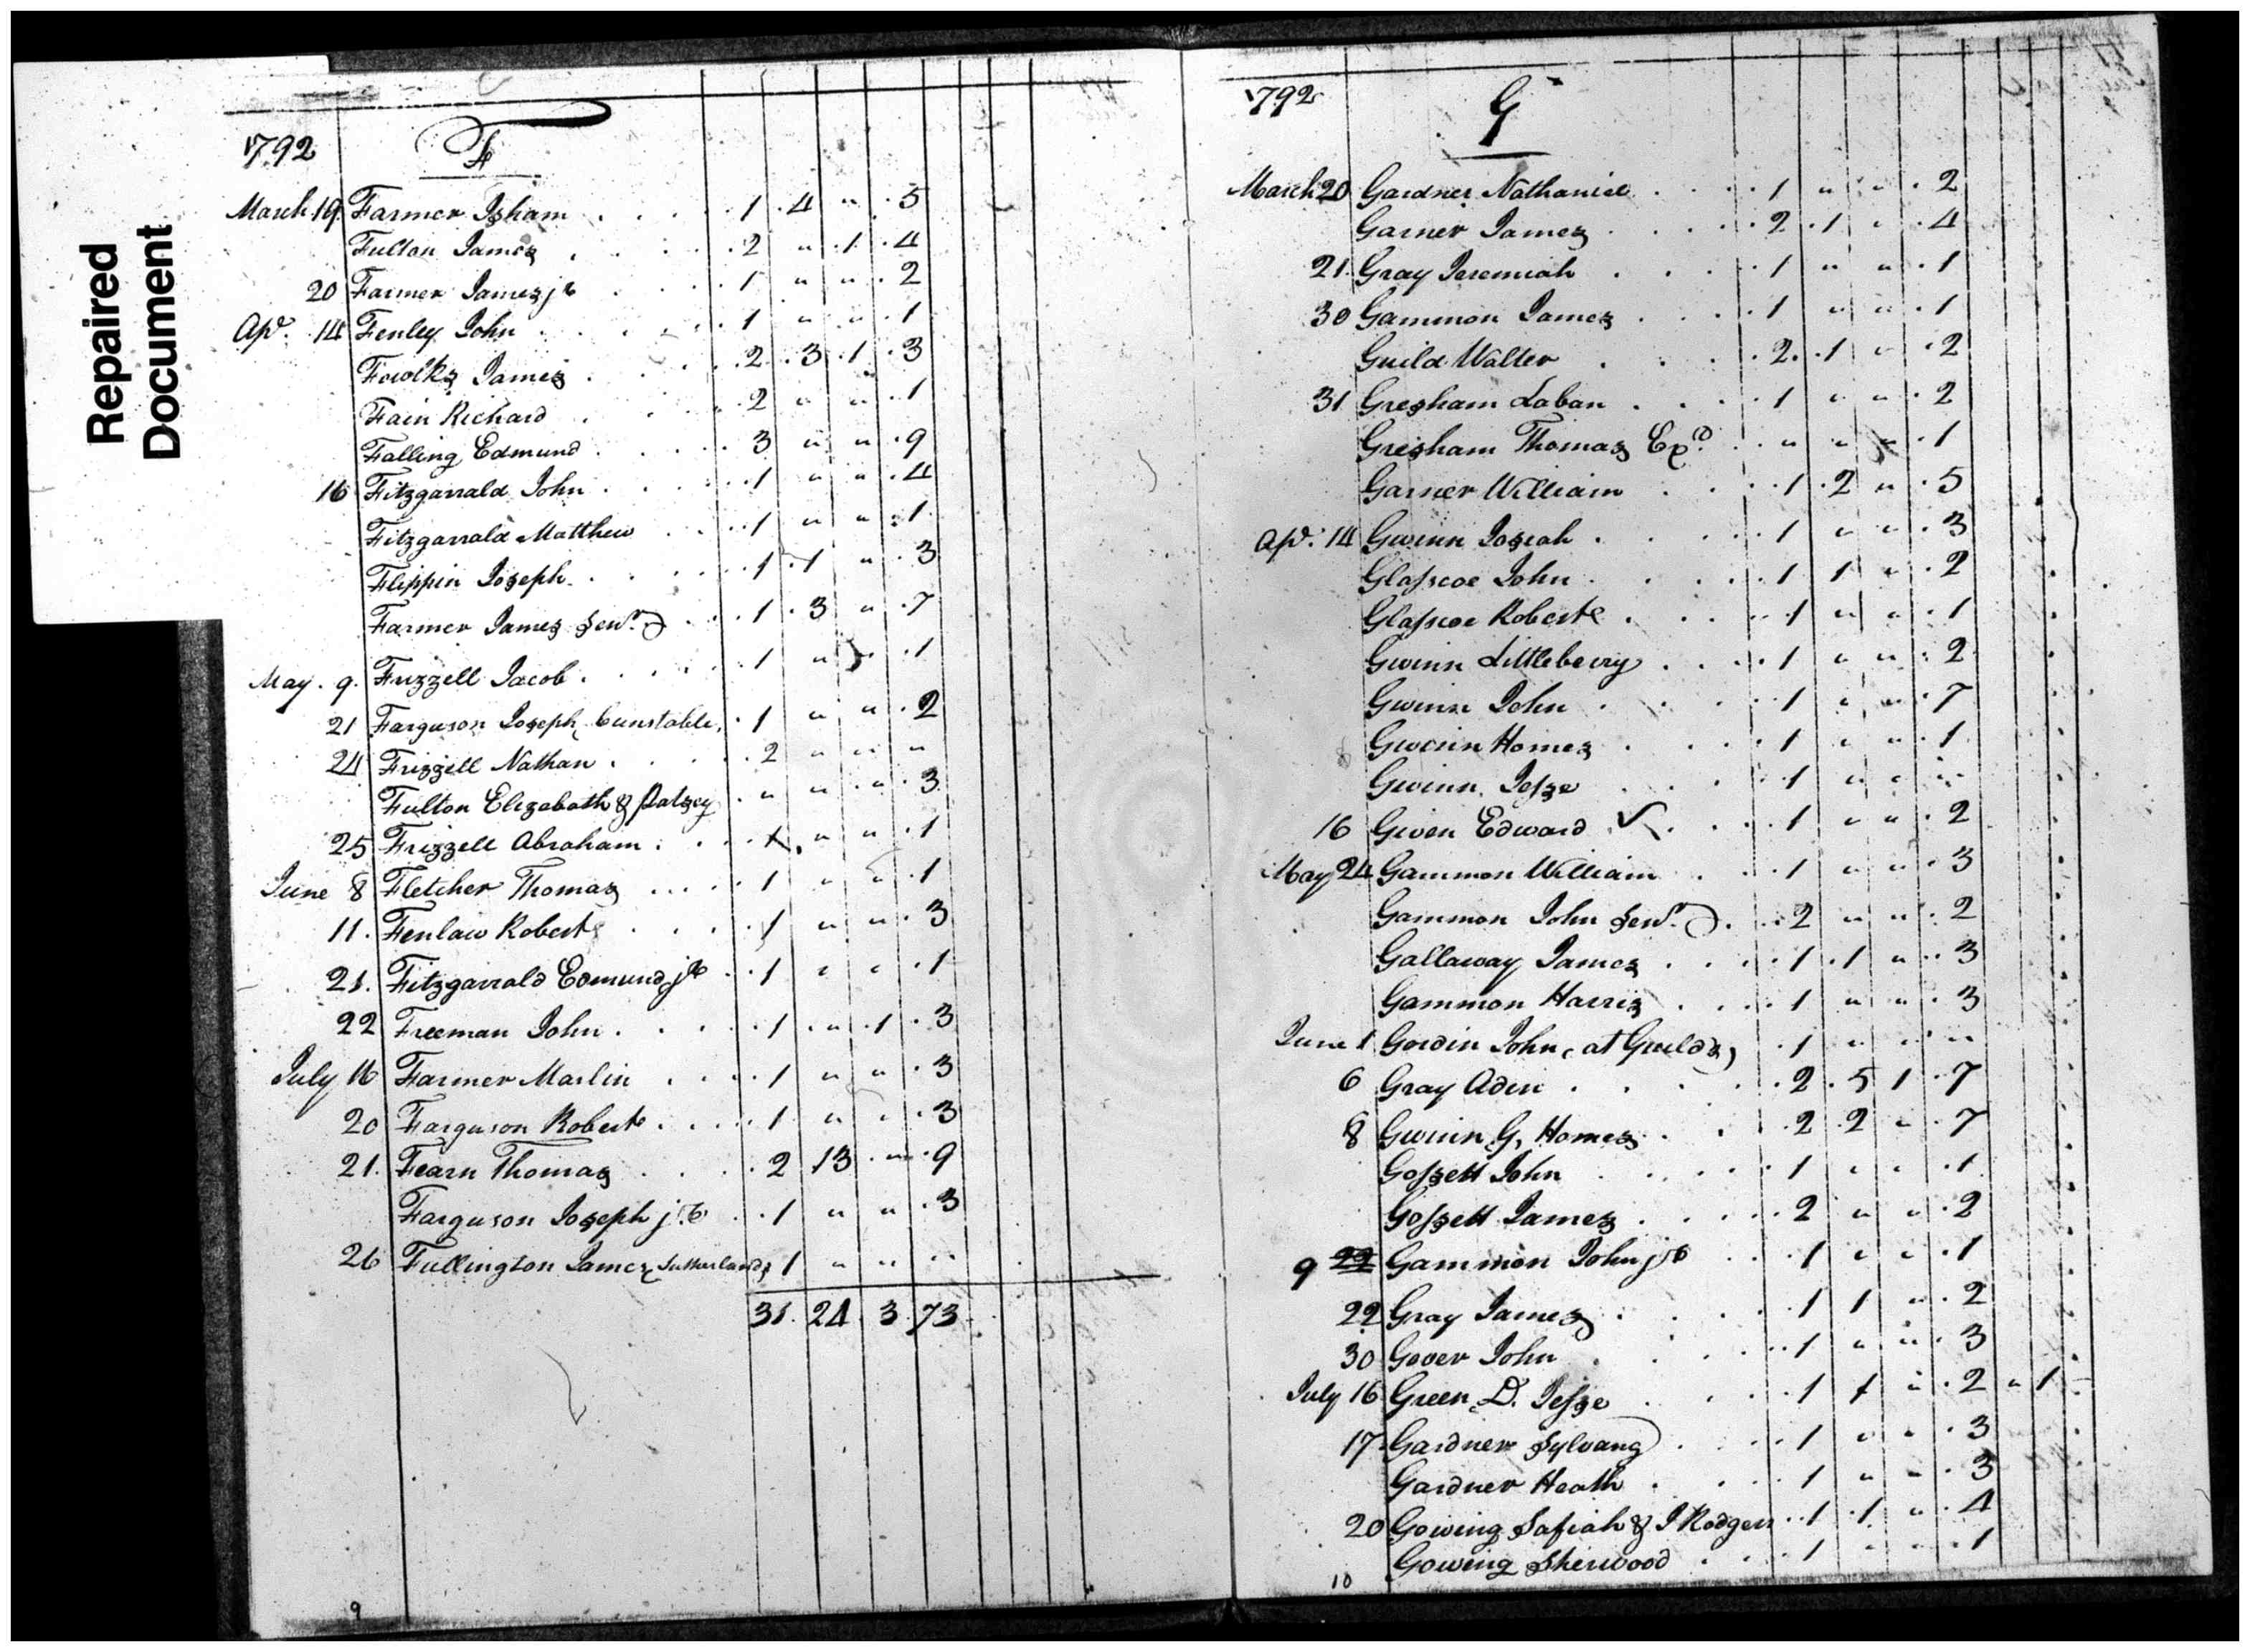 Repaired
Document
1792 F
March 19 Farmer Isham 1 4 " 5
Fulton James 2 " 1 4
20 Farmer James jr 1 " " 2
Apr. 14 Fenley John 1 " " 1
Fowlks James 2 3 1 3
Fain Richard 2 " " 1
Falling Edmund 3 " " 9
16 Fitzgarrald John 1 " " 4
Fitzgarrald Matthew 1 " " 1
Flippin Joseph 1 1 " 3
Farmer James Senr. 1 3 " 7
May 9 Frizzell Jacob 1 " " 1
21 Farguson Joseph Cunstable 1 " " 2
24 Frizzell Nathan 2 " " "
Fulton Elizabath & Patsey " " " 3
25 Frizzell Abraham 1 " " 1
June 8 Fletcher Thomas 1 " " 1
11 Fenlaw Robert 1 " " 3
21 Fitzgarrald Edmund jr 1 " " 1
22 Freeman John 1 " 1 3
July 16 Farmer Marlin 1 " " 3
20 Farguson Robert 1 " " 3
21 Fearn Thomas 2 13 " 9
Farguson Joseph jr 1 " " 3
26 Fullington James Sutherlands 1 " " "
31 24 3 73
9
1792 G
March 20 Gardner Nathaniel 1 " " 2
Garner James 2 1 " 4
21 Gray Jeremiah 1 " " 1
30 Gammon James 1 " " 1
Guild Walter 2 1 " 2
31 Gresham Laban 1 " " 2
Gresham Thomas Exd. " " " 1
Garner William 1 2 " 5
Apr. 14 Gwinn Josiah 1 " " 3
Glasscoe John 1 1 " 2
Glasscoe Robert 1 " " 1
Gwinn Littleberry 1 " " 2
Gwinn John 1 " " 7
Gwinn Homes 1 " " 1
Gwinn Jesse 1 " " "
16 Given Edward 1 " " 2
May 24 Gammon William 1 " " 3
Gammon John Senr. 2 " " 2
Gallaway James 1 1 " 3
Gammon Harris 1 " " 3
June 1 Gordin John, at Guilds, 1 " " "
6 Gray Aden 2 5 1 7
8 Gwinn G, Homes 2 2 " 7
Gossett John 1 " " 1
Gossett James 2 " " 2
9 22 Gammon John jr 1 " " 1
22 Gray James 1 1 " 2
30 Gover John 1 " " 3
July 16 Green D. Jesse 1 1 " 2 " 1
17 Gardner Sylvang 1 " " 3
Gardner Heath 1 " " 3
20 Gowing & J Rodgers 1 1 " 4
Gowing Sherwood 1 " " 1
10